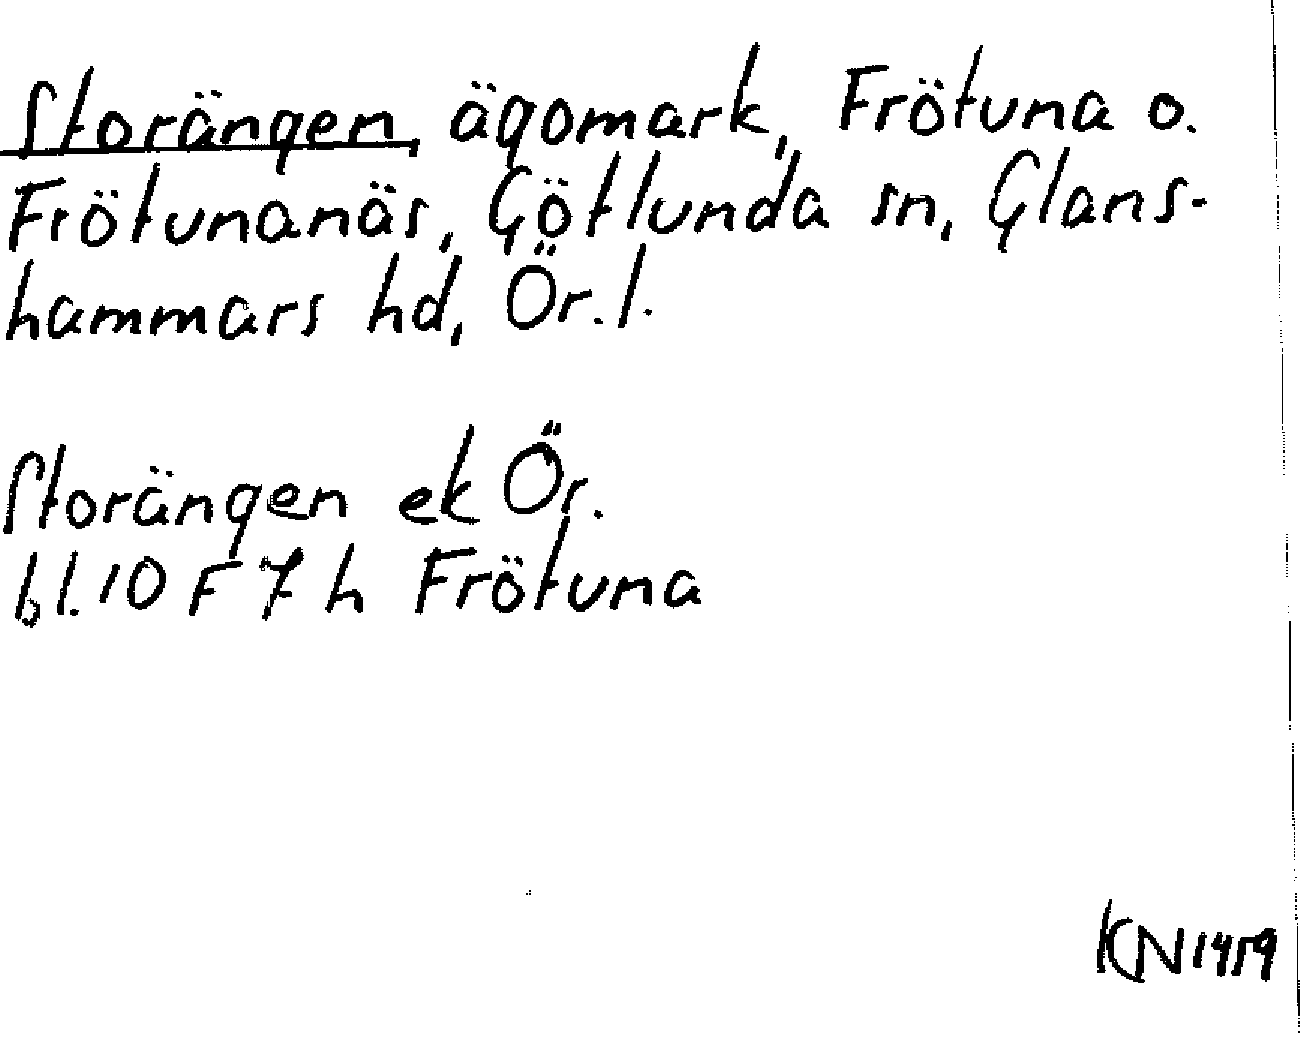 Storängen, ägomark, Frötuna o.
Frötunanäs, Götlunda sn, Glans-
hammars hd, Ör. l.
Storängen ek Ör.
bl. 10 F 7 h Frötuna
KN 1959